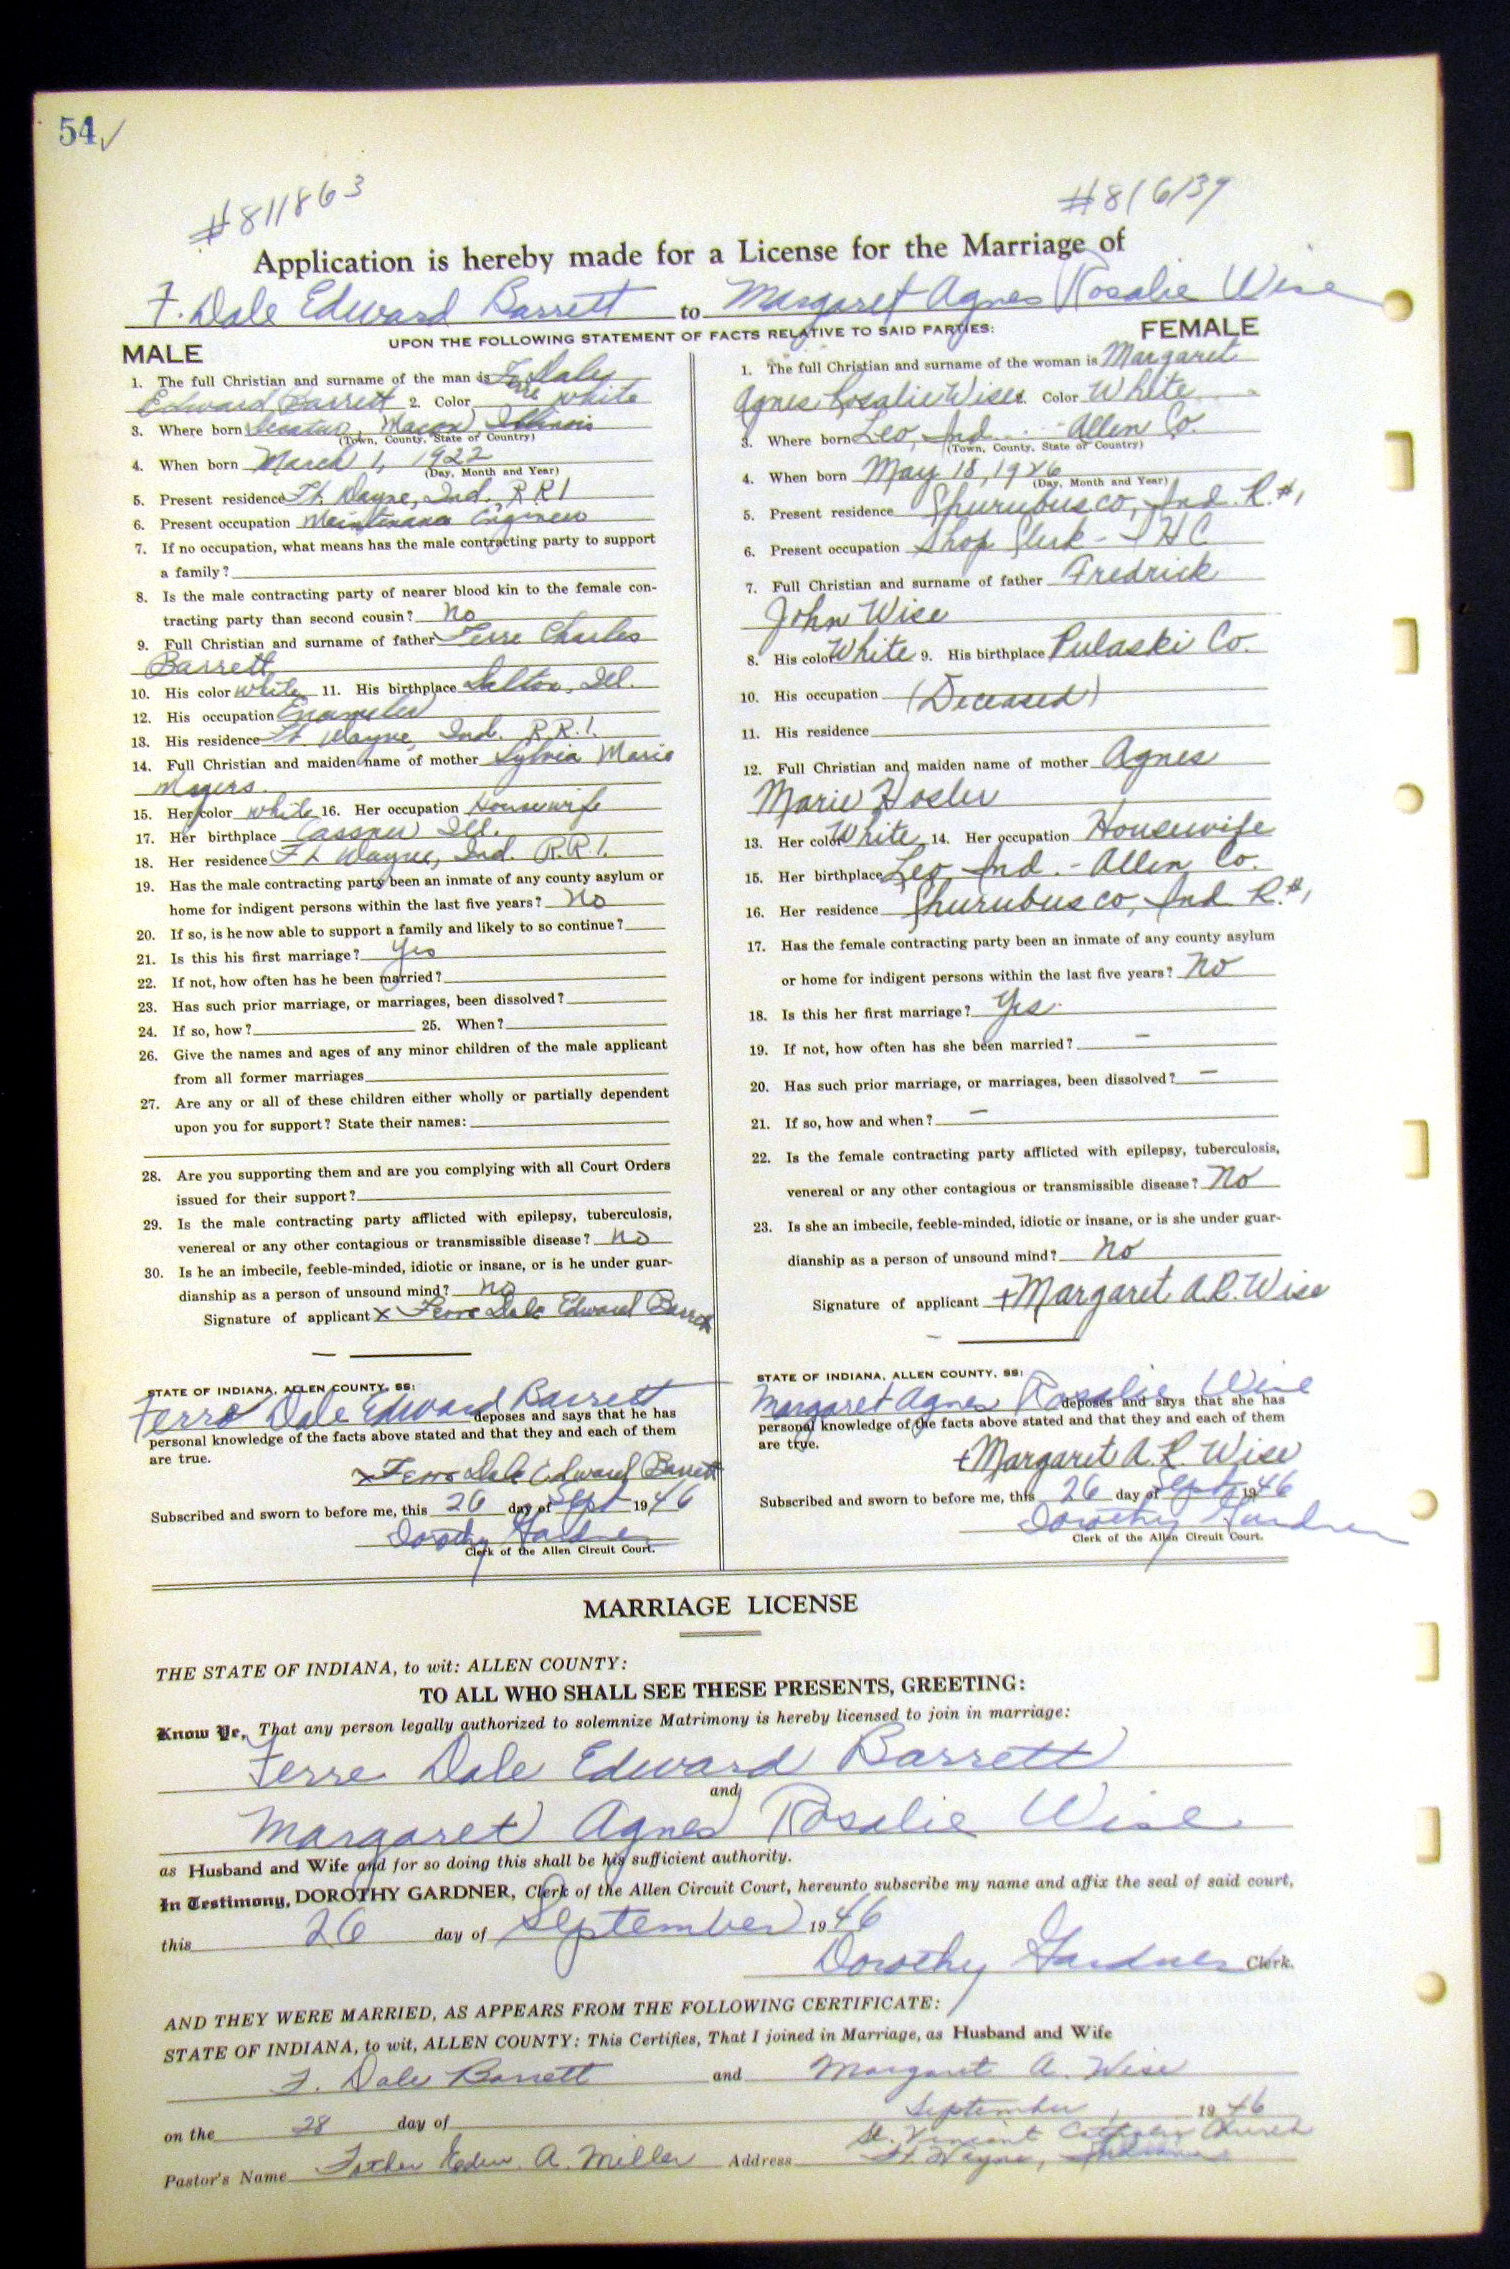 54 ✓
#811863
#816139
Application is hereby made for a License for the Marriage of
F. Dale Edward Barrett to Margaret Agnes Rosalie Wise
UPON THE FOLLOWING STATEMENT OF FACTS RELATIVE TO SAID PARTIES:
MALE
1. The full Christian and surname of the man is Ferre Dale
Edward Barrett 2. Color White
3. Where born Decatur, Macon, Illinois
(Town, County, State or Country)
4. When born March 1, 1922
(Day, Month and Year)
5. Present residence Ft. Wayne, Ind. R R 1
6. Present occupation Maintenance Engineer
7. If no occupation, what means has the male contracting party to support
a family?
8. Is the male contracting party of nearer blood kin to the female con-
tracting party than second cousin? No
9. Full Christian and surname of father Ferre Charles
Barrett
10. His color White 11. His birthplace Dalton, Ill.
12. His occupation Enameler
13. His residence Ft. Wayne, Ind. R.R.1.
14. Full Christian and maiden name of mother Sylvia Marie
Mayers
15. Her color White 16. Her occupation Housewife
17. Her birthplace Casner Ill.
18. Her residence Ft Wayne, Ind. R.R.1.
19. Has the male contracting party been an inmate of any county asylum or
home for indigent persons within the last five years? No
20. If so, is he now able to support a family and likely to so continue?
21. Is this his first marriage? Yes
22. If not, how often has he been married?
23. Has such prior marriage, or marriages, been dissolved?
24. If so, how? 25. When?
26. Give the names and ages of any minor children of the male applicant
from all former marriages
27. Are any or all of these children either wholly or partially dependent
upon you for support? State their names:
28. Are you supporting them and are you complying with all Court Orders
issued for their support?
29. Is the male contracting party afflicted with epilepsy, tuberculosis,
venereal or any other contagious or transmissible disease? No
30. Is he an imbecile, feeble-minded, idiotic or insane, or is he under guar-
dianship as a person of unsound mind? No
Signature of applicant x Ferre Dale Edward Barrett
STATE OF INDIANA, ALLEN COUNTY, SS:
Ferre Dale Edward Barrett deposes and says that he has
personal knowledge of the facts above stated and that they and each of them
are true.
x Ferre Dale Edward Barrett
Subscribed and sworn to before me, this 26 day of Sept 1946
Dorothy Gardner
Clerk of the Allen Circuit Court.
FEMALE
1. The full Christian and surname of the woman is Margaret
Agnes Rosalie Wise 2. Color White
3. Where born Leo, Ind. Allen Co.
(Town, County, State or Country)
4. When born May 18, 1926
(Day, Month and Year)
5. Present residence Churubusco, Ind. R. #1
6. Present occupation Shop Clerk - I H C
7. Full Christian and surname of father Fredrick
John Wise
8. His color White 9. His birthplace Pulaski Co.
10. His occupation (Deceased)
11. His residence
12. Full Christian and maiden name of mother Agnes
Marie Hosler
13. Her color White 14. Her occupation Housewife
15. Her birthplace Leo, Ind. - Allen Co.
16. Her residence Churubusco, Ind R. #1
17. Has the female contracting party been an inmate of any county asylum
or home for indigent persons within the last five years? No
18. Is this her first marriage? Yes.
19. If not, how often has she been married? —
20. Has such prior marriage, or marriages, been dissolved? —
21. If so, how and when? —
22. Is the female contracting party afflicted with epilepsy, tuberculosis,
venereal or any other contagious or transmissible disease? No
23. Is she an imbecile, feeble-minded, idiotic or insane, or is she under guar-
dianship as a person of unsound mind? No
Signature of applicant + Margaret A.R. Wise
STATE OF INDIANA, ALLEN COUNTY, SS:
Margaret Agnes Rosalie Wise deposes and says that she has
personal knowledge of the facts above stated and that they and each of them
are true.
+ Margaret A. R. Wise
Subscribed and sworn to before me, this 26 day of Sept 1946
Dorothy Gardner
Clerk of the Allen Circuit Court.
MARRIAGE LICENSE
THE STATE OF INDIANA, to wit: ALLEN COUNTY:
TO ALL WHO SHALL SEE THESE PRESENTS, GREETING:
Know Ye, That any person legally authorized to solemnize Matrimony is hereby licensed to join in marriage:
Ferre Dale Edward Barrett
and
Margaret Agnes Rosalie Wise
as Husband and Wife and for so doing this shall be his sufficient authority.
In Testimony, DOROTHY GARDNER, Clerk of the Allen Circuit Court, hereunto subscribe my name and affix the seal of said court,
this 26 day of September 1946
Dorothy Gardner Clerk.
AND THEY WERE MARRIED, AS APPEARS FROM THE FOLLOWING CERTIFICATE:
STATE OF INDIANA, to wit, ALLEN COUNTY: This Certifies, That I joined in Marriage, as Husband and Wife
F. Dale Barrett and Margaret A. Wise
on the 28 day of September, 1946
Pastor's Name Father A. Miller Address St. Vincent Catholic Church
Ft. Wayne, Indiana